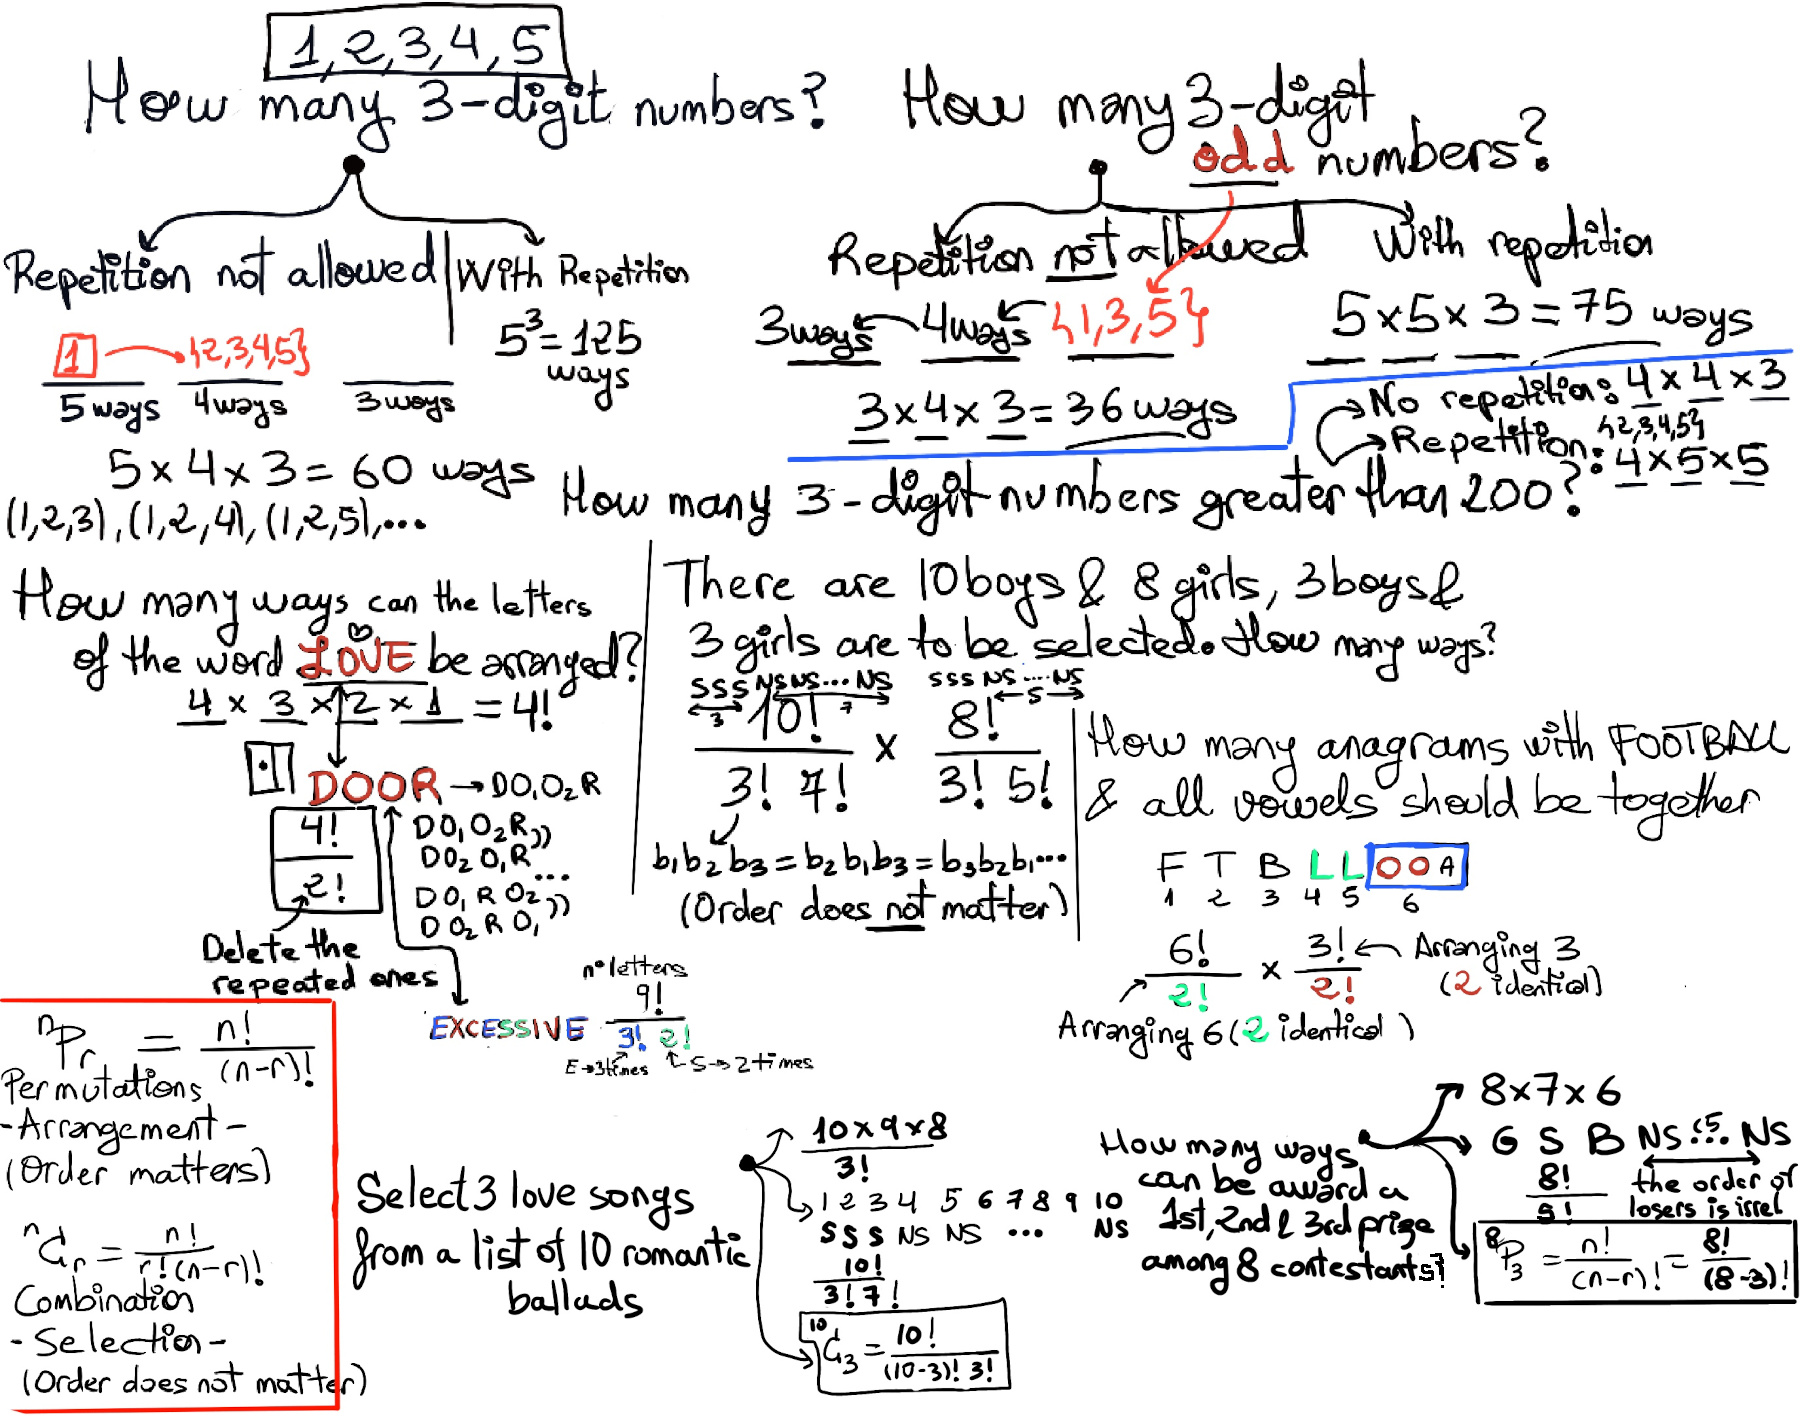 1, 2, 3, 4, 5
How many 3-digit numbers?
Repetition not allowed
With Repetition
1 {2,3,4,5}
5 ways 4 ways 3 ways
5³ = 125
ways
5 × 4 × 3 = 60 ways
(1,2,3), (1,2,4), (1,2,5), ...
How many 3-digit
odd numbers?
Repetition not allowed
With repetition
3 ways 4 ways {1,3,5}
3 × 4 × 3 = 36 ways
5 × 5 × 3 = 75 ways
No repetition: 4 × 4 × 3
{2,3,4,5}
Repetition: 4 × 5 × 5
How many 3-digit numbers greater than 200?
How many ways can the letters
of the word LOVE be arranged?
4 × 3 × 2 × 1 = 4!
DOOR → DO₁O₂R
4!
2!
DO₁O₂R
DO₂O₁R
...
DO₁RO₂
DO₂RO₁
Delete the
repeated ones
nº letters
EXCESSIVE 9!
3! 2!
E→3times S→2times
There are 10 boys & 8 girls, 3 boys &
3 girls are to be selected. How many ways?
SSS NS NS ... NS SSS NS ... NS
3 7 5
10! × 8!
3! 7! 3! 5!
b₁b₂b₃ = b₂b₁b₃ = b₃b₂b₁ ...
(Order does not matter)
How many anagrams with FOOTBALL
& all vowels should be together
F T B L L O O A
1 2 3 4 5 6
6! × 3! ← Arranging 3
2! 2! (2 identical)
Arranging 6 (2 identical)
ⁿPᵣ = n!
(n-r)!
Permutations
- Arrangement -
(Order matters)
ⁿCᵣ = n!
r!(n-r)!
Combination
- Selection -
(Order does not matter)
Select 3 love songs
from a list of 10 romantic
ballads
10 × 9 × 8
3!
1 2 3 4 5 6 7 8 9 10
S S S NS NS ... NS
10!
3! 7!
¹⁰C₃ = 10!
(10-3)! 3!
How many ways
can be award a
1st, 2nd & 3rd prize
among 8 contestants?
8 × 7 × 6
G S B NS ... NS
8!
5!
the order of
losers is irrel
⁸P₃ = n! = 8!
(n-r)! (8-3)!